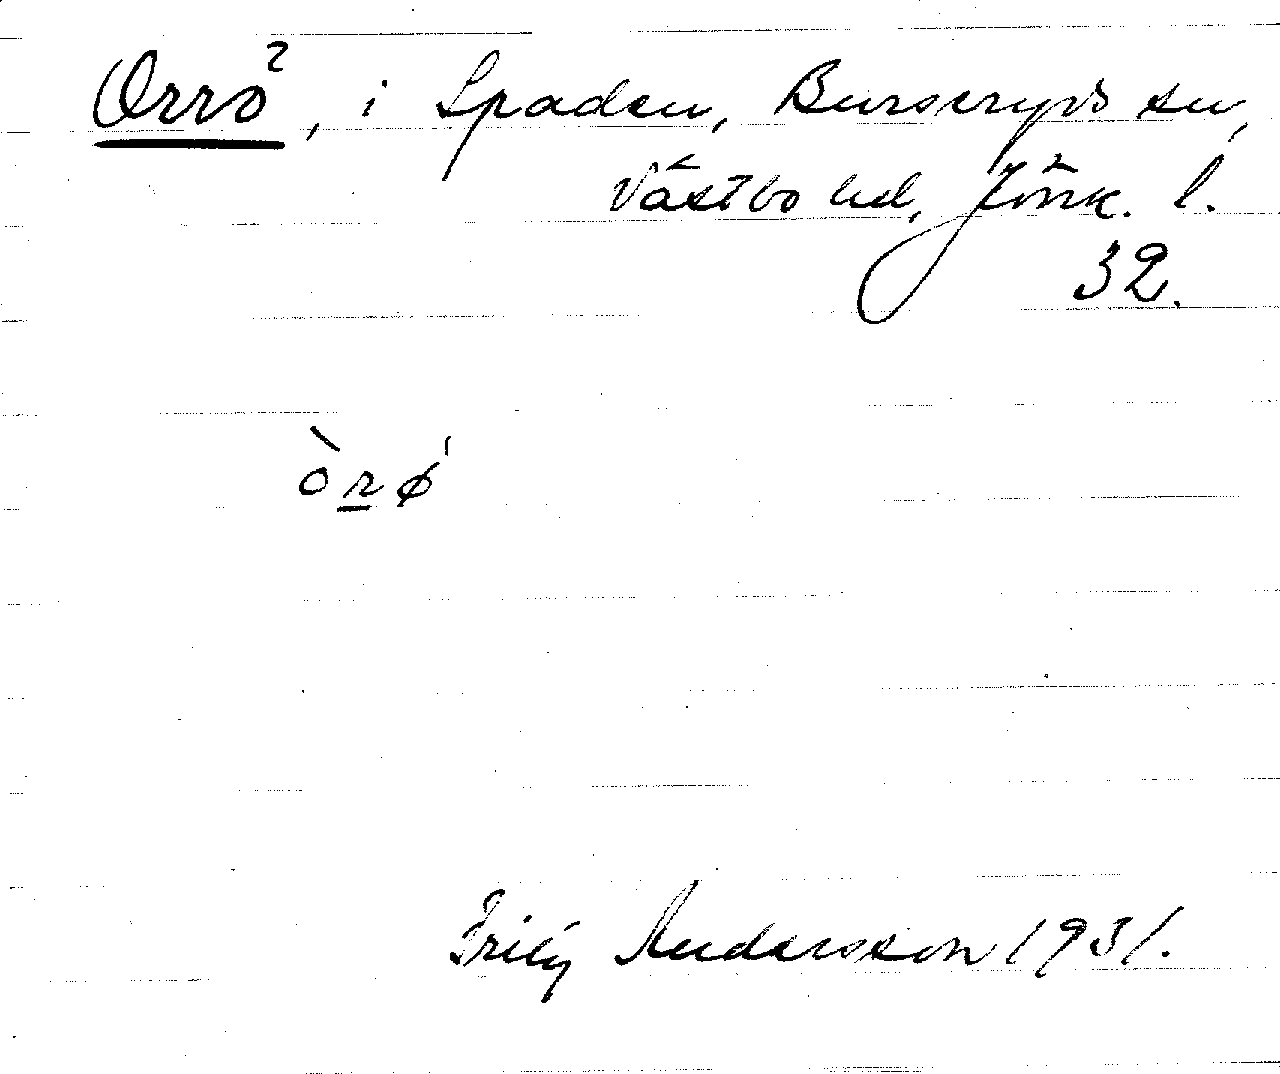 Orrö, i Spaden, Burseryds sn,
Västbo hd, Jönk. l.
32.
òrø
Fritz Andersson 1931.